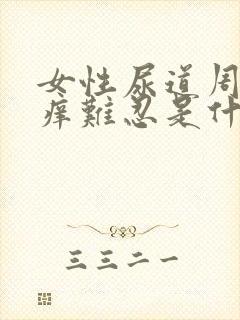 女性尿道周
痒難忍是什
三三二一